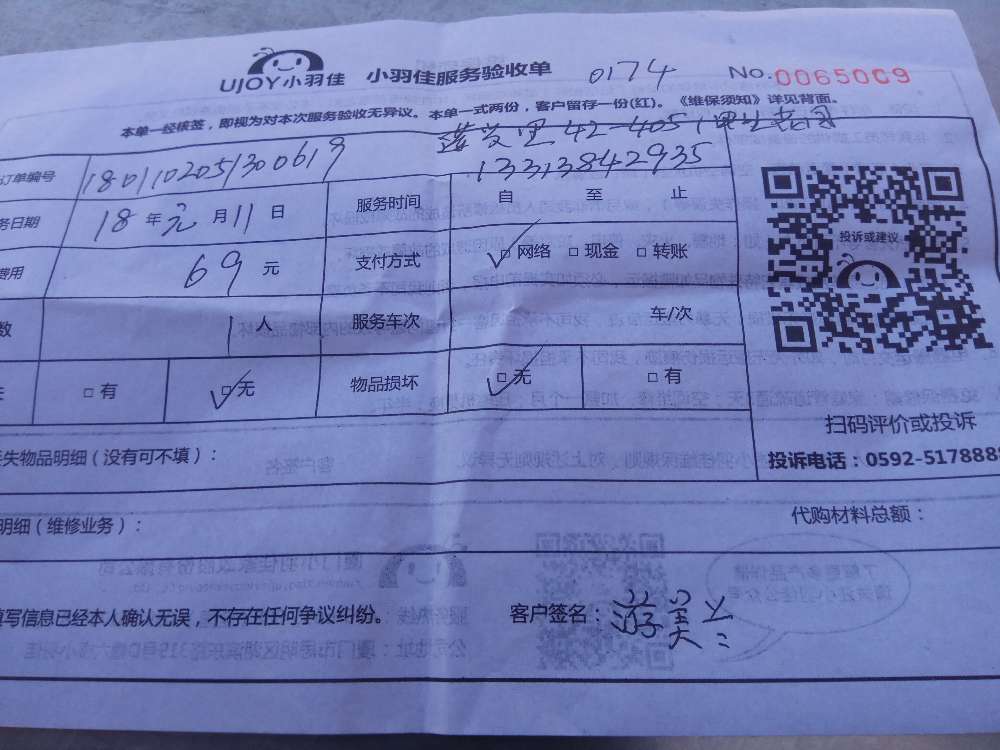 UJOY小羽佳 小羽佳服务验收单 0174 No.0065009
本单一经核签，即视为对本次服务验收无异议。本单一式两份，客户留存一份(红)。《维保须知》详见背面。
莲发里42-405
13313842935
订单编号 1801102051300619
务日期 18年元月11日 服务时间 自 至 止
费用 69元 支付方式 ☑网络 □现金 □转账
数 1人 服务车次 车/次
□有 ☑无 物品损坏 ☑无 □有
投诉或建议
扫码评价或投诉
投诉电话：0592-5178888
失物品明细（没有可不填）：
明细（维修业务）： 代购材料总额：
填写信息已经本人确认无误，不存在任何争议纠纷。 客户签名：游